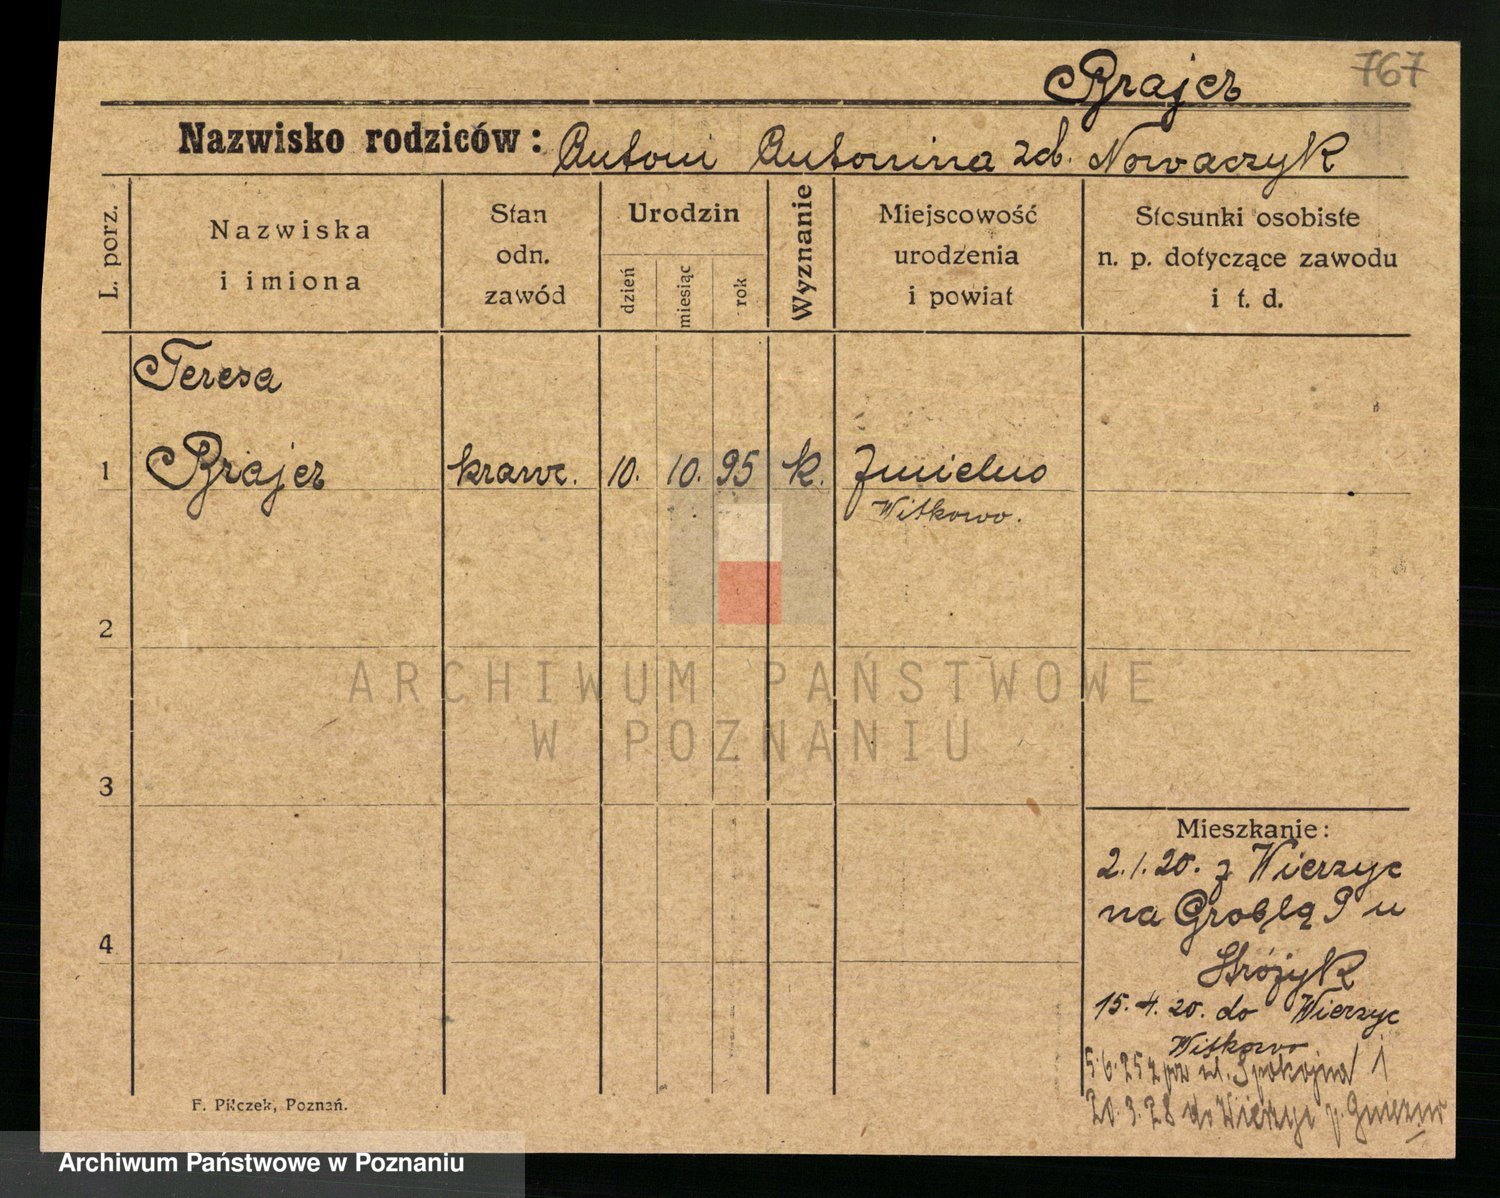 Brajer
767
Nazwisko rodziców: Antoni Antonina zd. Nowaczyk
L. porz.
Nazwiska
i imiona
Stan
odn.
zawód
Urodzin
dzień
miesiąc
rok
Wyznanie
Miejscowość
urodzenia
i powiat
Stosunki osobiste
n. p. dotyczące zawodu
i t. d.
Teresa
1 Brajer krawc. 10. 10. 95 k.
Witkowo.
2
3
4
ARCHIWUM PAŃSTWOWE
W POZNANIU
Mieszkanie:
2.1.20. z Wierzyc
na Groblą 9 u
Stróżyk
15.4.20. do Wierzyc
Witkowo
5.6.25 z ul. Spokojna 1
20.3.28 do Wierzyc p. Gniezno
F. Pilczek, Poznań.
Archiwum Państwowe w Poznaniu